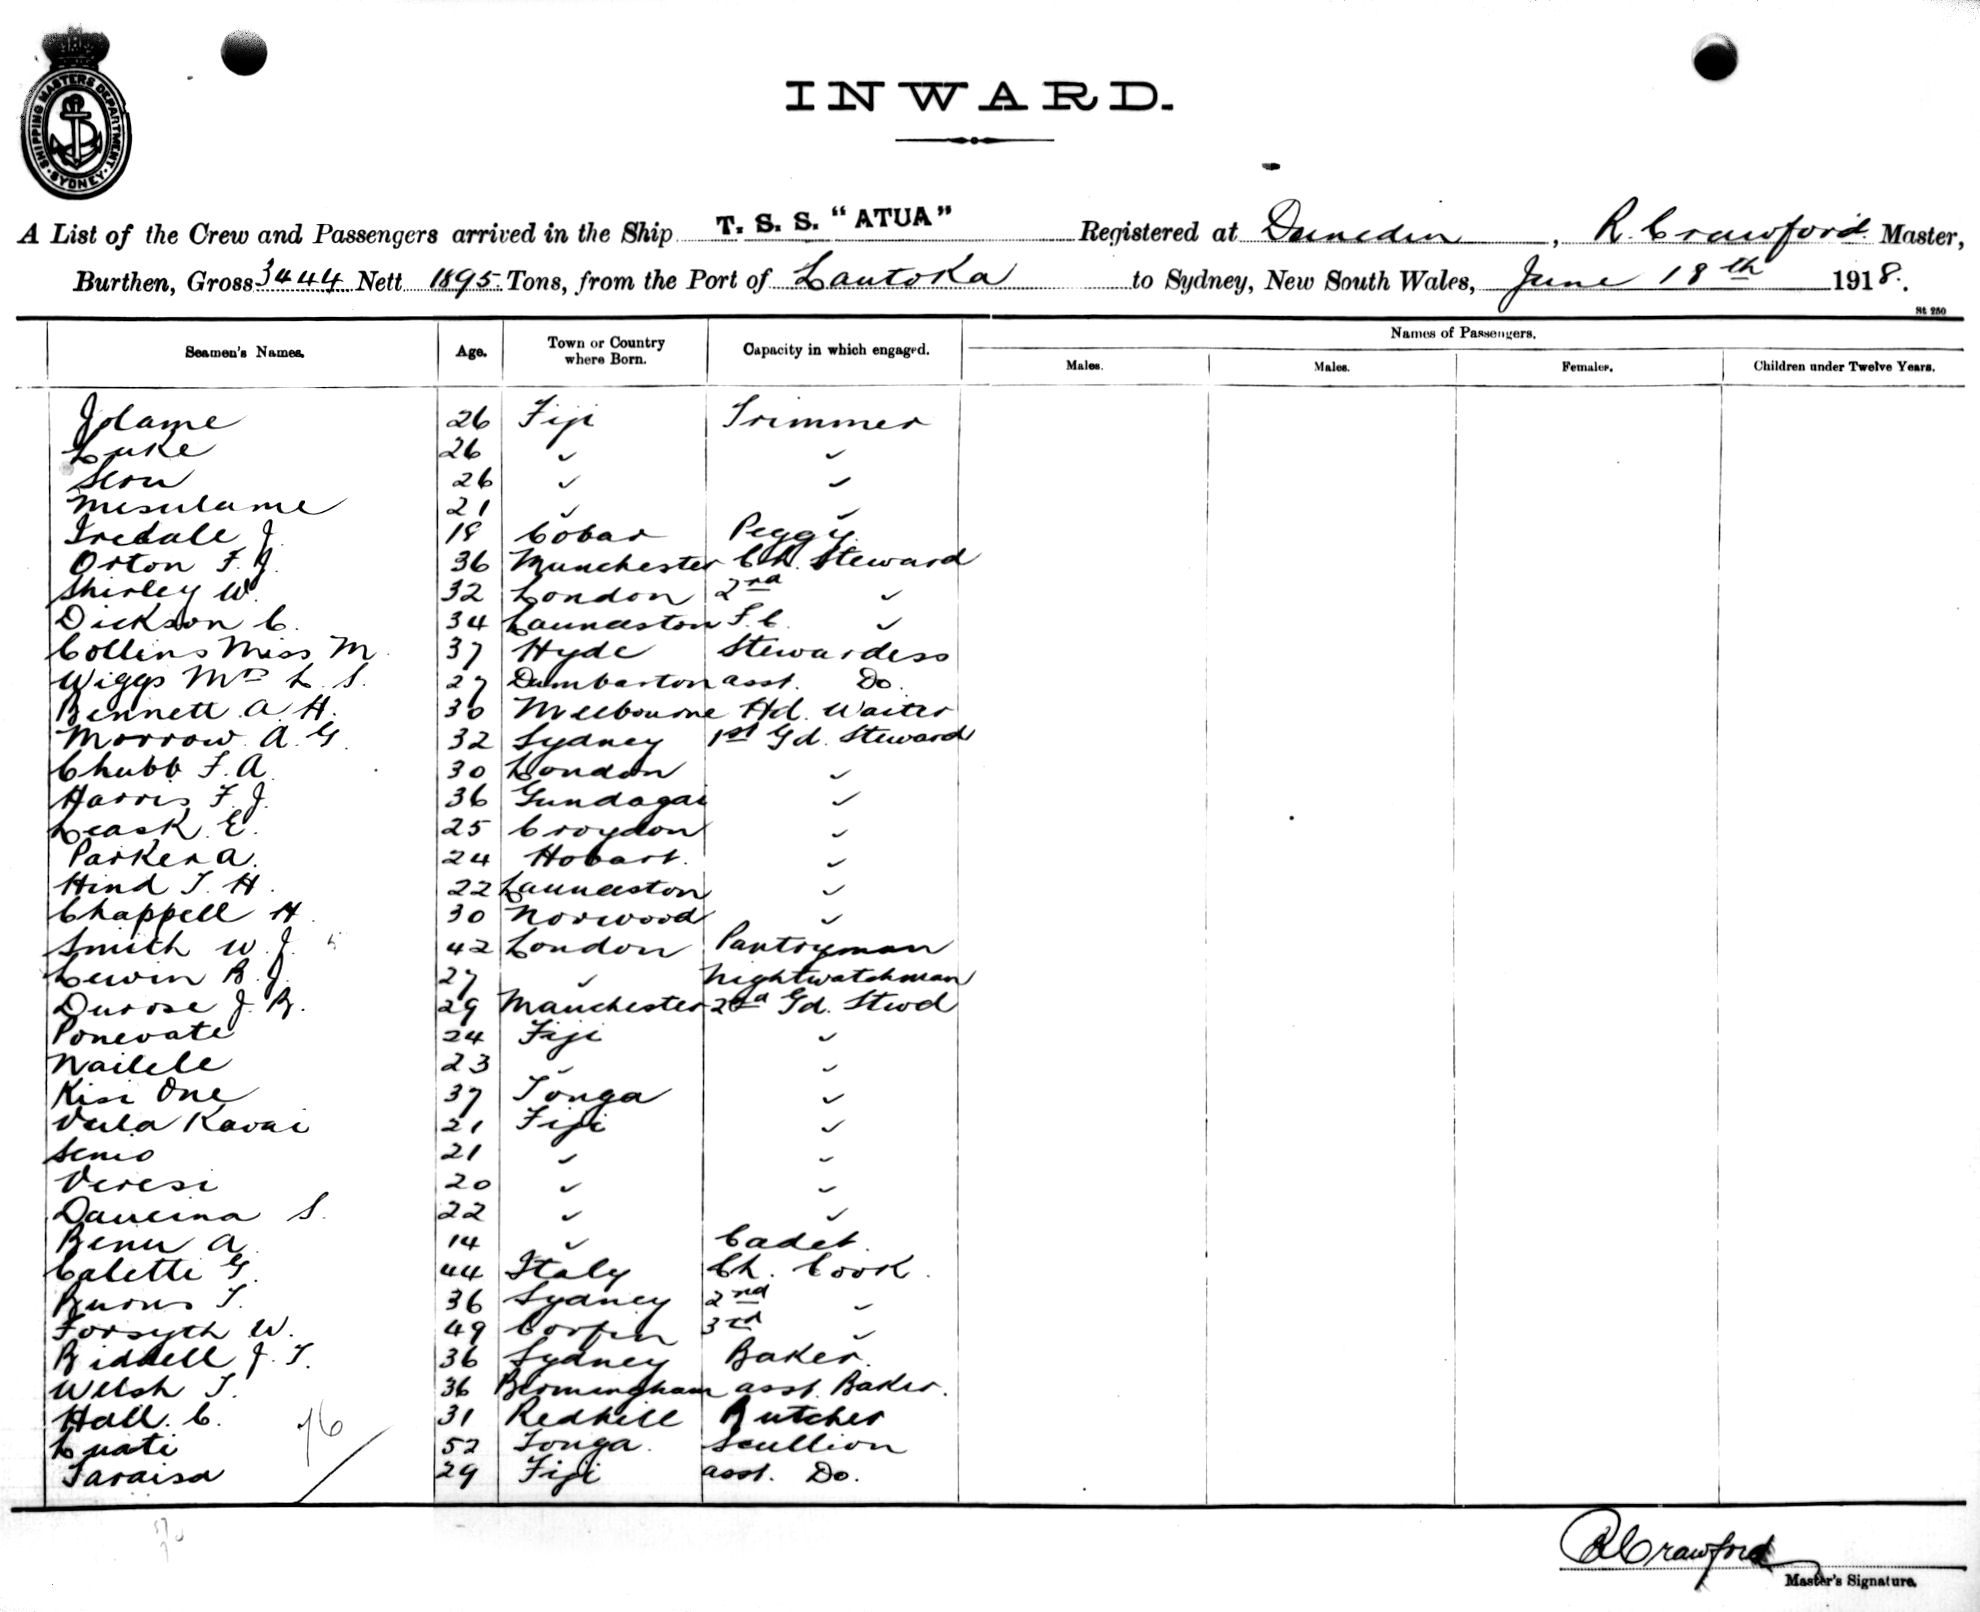 SHIPPING MASTERS DEPARTMENT · SYDNEY ·
INWARD.
A List of the Crew and Passengers arrived in the Ship T. S. S. "ATUA" Registered at Dunedin, R. Crawford Master,
Burthen, Gross 3444 Nett 1895 Tons, from the Port of Lautoka to Sydney, New South Wales, June 18th 1918.
St 250
Seamen's Names. Age. Town or Country where Born. Capacity in which engaged. Names of Passengers.
Males. Males. Females. Children under Twelve Years.
Jolame 26 Fiji Trimmer
Luke 26 ✓ ✓
Sion 26 ✓ ✓
Mesulame 21 ✓ ✓
Iredale J. 18 Cobar Peggy.
Orton F. J. 36 Manchester Ch. Steward
Shirley W. 32 London 2nd ✓
Dickson C. 34 Launceston F.C. ✓
Collins Miss M. 37 Hyde Stewardess
Wiggs Mrs L. S. 27 Dumbarton asst. Do.
Bennett A. H. 30 Melbourne Hd. Waiter
Morrow A. G. 32 Sydney 1st Gd. Steward
Chubb F. A. 30 London ✓
Harris F. J. 36 Gundagai ✓
Leask E. 25 Croydon ✓
Parker A. 24 Hobart. ✓
Hind T. H. 22 Launceston ✓
Chappell H. 30 Norwood ✓
Smith W. J. 42 London Pantryman
Lewin R. J. 27 ✓ Nightwatchman
Durose J. R. 29 Manchester 2nd Gd. Stwd
Ponevate 24 Fiji ✓
Nailele 23 ✓ ✓
Kisi One 37 Tonga ✓
Vula Kavai 21 Fiji ✓
Semo 21 ✓ ✓
Veresi 20 ✓ ✓
Daveina S. 22 ✓ ✓
A. 14 ✓ Cadet.
Caletti G. 44 Italy Ch. Cook.
Burns T. 36 Sydney 2nd ✓
Forsyth W. 49 3rd ✓
Riddell J. T. 36 Sydney Baker.
Welsh T. 36 Birmingham asst. Baker.
Hall. C. 31 Redhill Butcher
Luati 52 Tonga. Scullion
Taraisa 29 Fiji asst. Do.
76
R Crawford
Master's Signature.